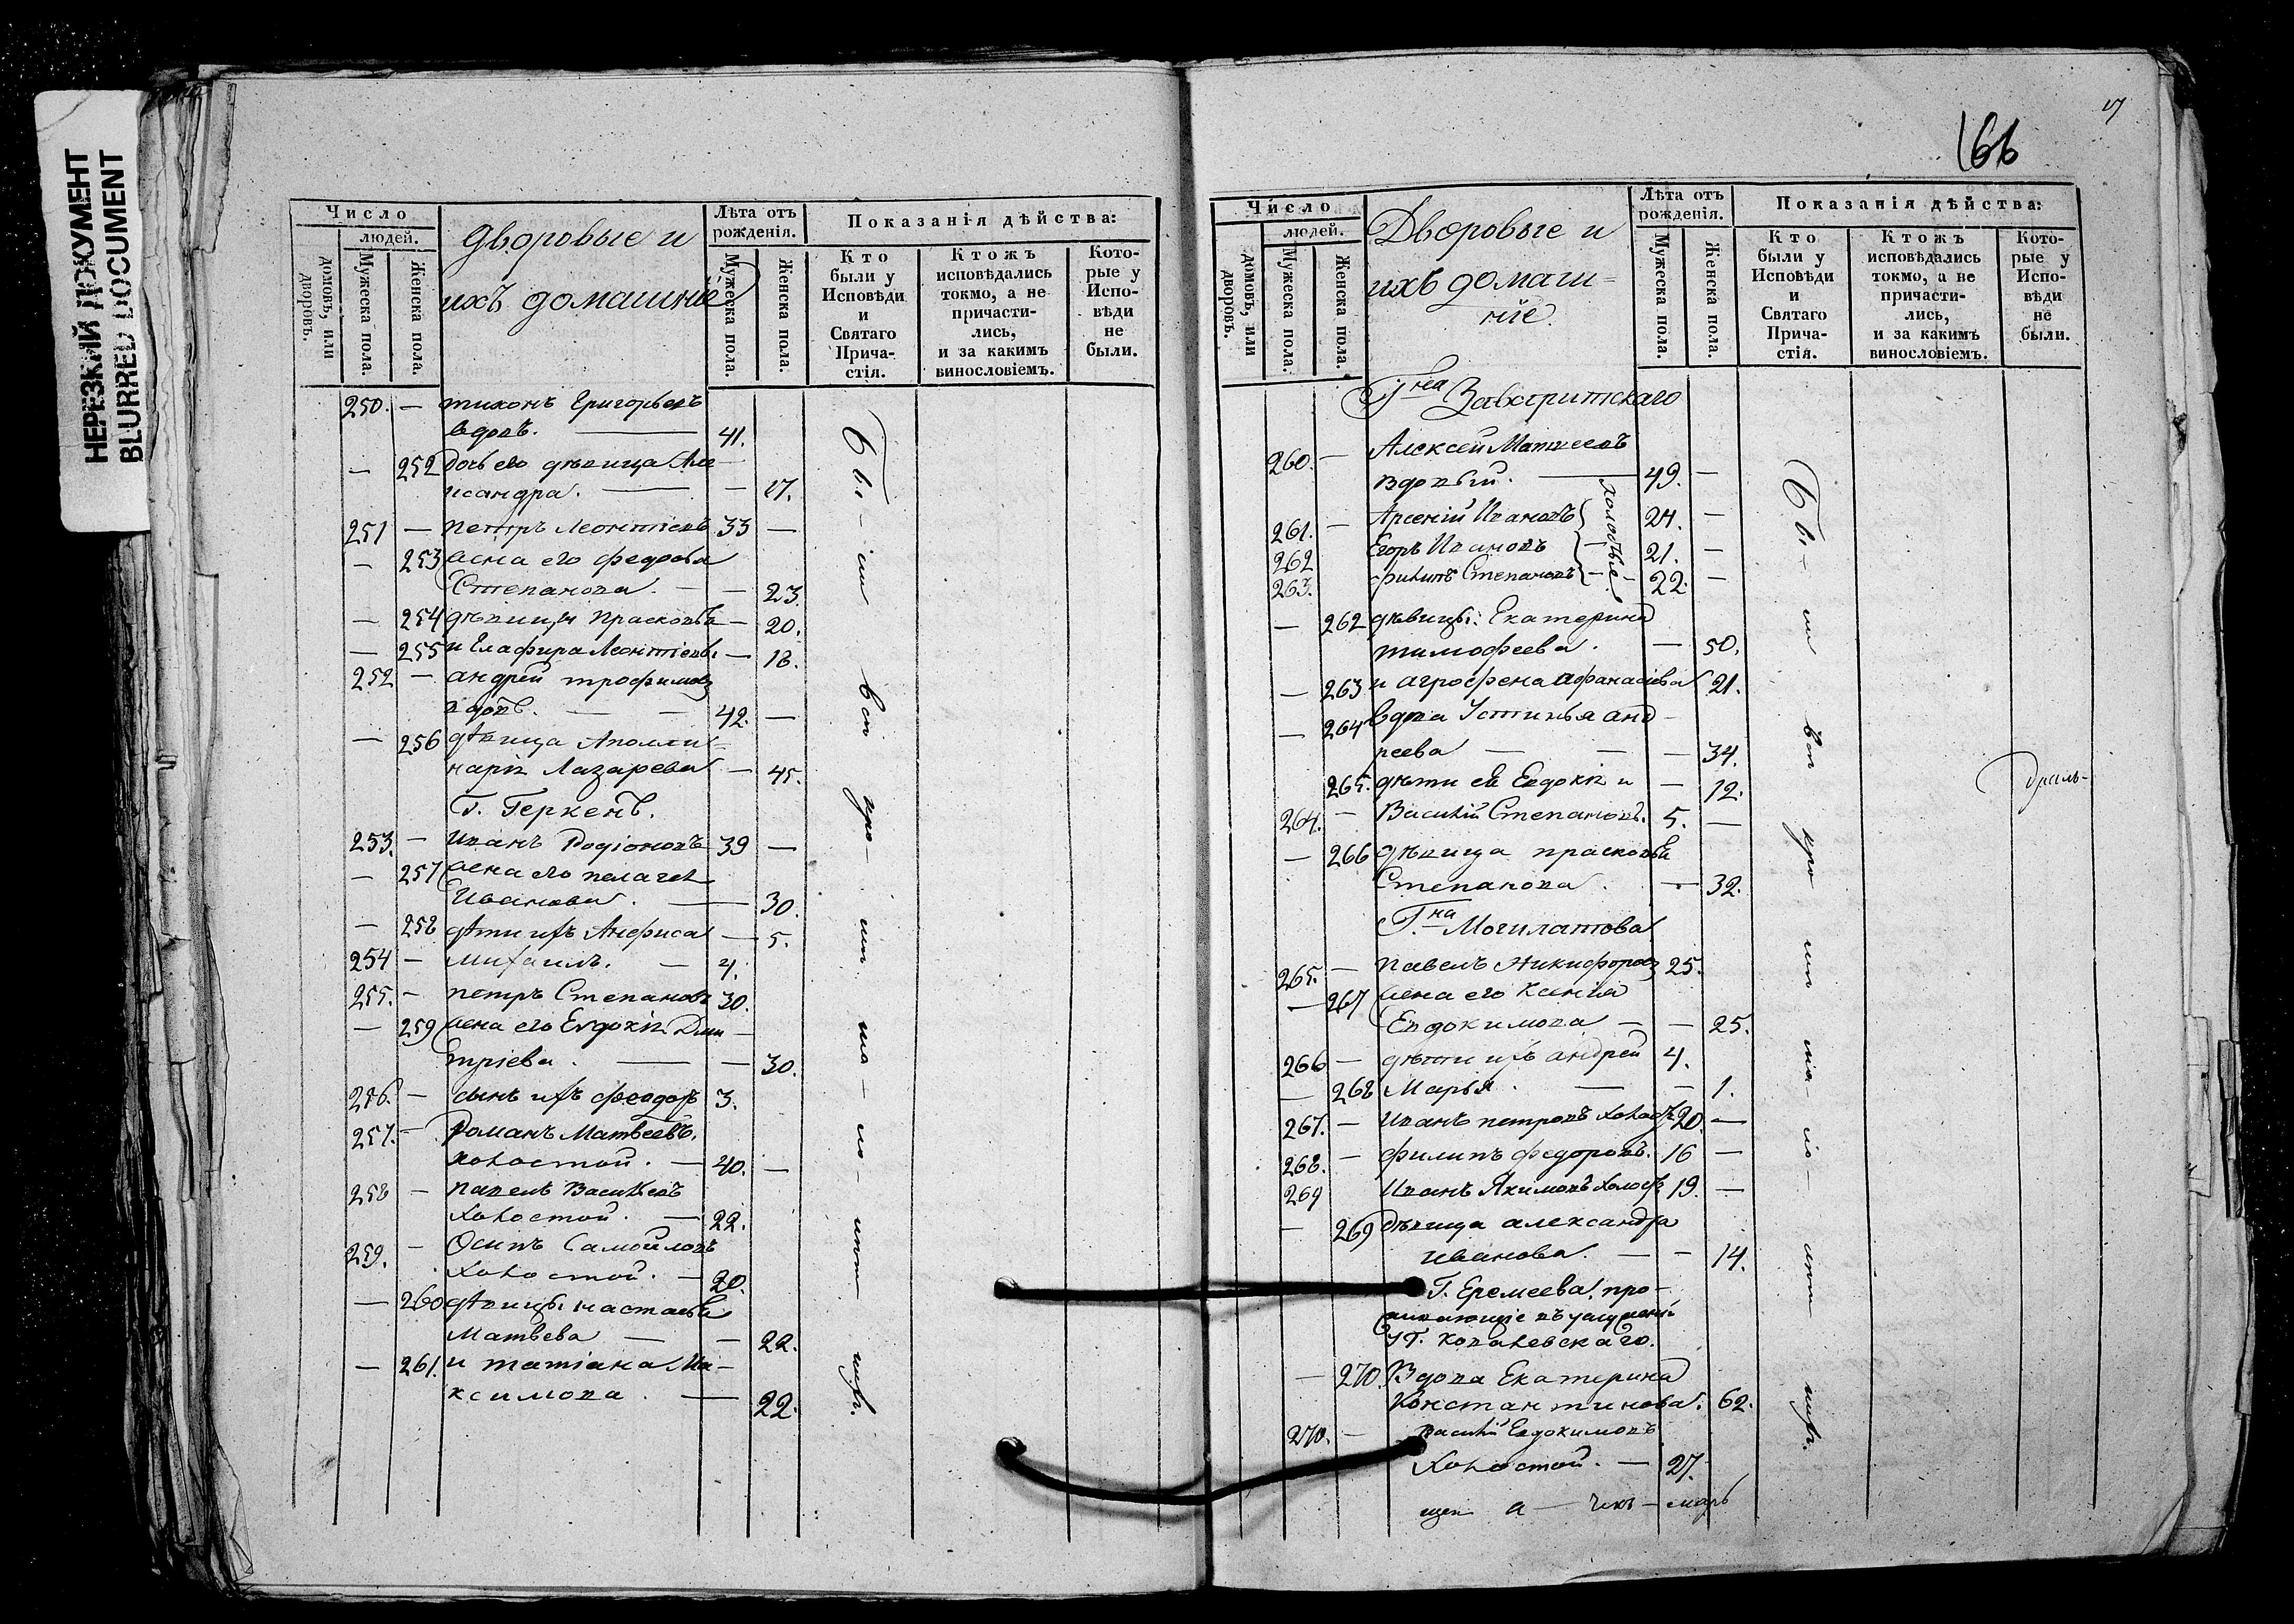 НЕРЕЗКИЙ ДОКУМЕНТ
BLURRED DOCUMENT
Число
людей.
домовъ, или дворовъ.
Мужеска пола.
Женска пола.
Дворовые и
ихъ домашніе
Лѣта отъ рожденія.
Мужеска пола.
Женска пола.
Показанія дѣйства:
Кто были у Исповѣди и Святаго Прича-стія.
Ктожъ исповѣдались токмо, а не причасти-лись, и за какимъ винословіемъ.
Кото-рые у Испо-вѣди не были.
250. — Тихонъ Григорьевъ
вдовъ. — 41.
— 252 Дочь его дѣвица Але-
ксандра. — — 17.
251 — Петръ Леонтіевъ 33 —
— 253 Жена его Федосья
Степанова. — — 23.
— 254 дѣвицы Прасковья — 20.
— 255 и Глафира Леонтіевы — 18.
252 — Андрей Трофимовъ
вдовъ. — — 42. —
— 256 дѣвица Аполли=
нарія Лазарева — 45.
Г. Геркенъ.
253. — Иванъ Родіоновъ 39 —
— 257 Жена его Пелагея
Иванова. — 30.
— 258 дѣти ихъ Анфиса — 5.
254 — Михаилъ. — 4.
255. — Петръ Степановъ 30.
— 259 Жена его Евдокія Дми —
тріева. — — 30.
256. — сынъ ихъ Феодоръ 3.
257. — Романъ Матвеевъ.
холостой. — 40. —
258 — Павелъ Васильевъ
холостой. — 22.
259. — Осипъ Самойловъ
холостой. — 20.
— 260 дѣвицы Настасья
Матвева — — 22.
— 261. и Татіана Ма-
ксимова. — 22.
17
166
Число
людей.
домовъ, или дворовъ.
Мужеска пола.
Женска пола.
Дворовые и
ихъ домаш=
ніе.
Лѣта отъ рожденія.
Мужеска пола.
Женска пола.
Показанія дѣйства:
Кто были у Исповѣди и Святаго Прича-стія.
Ктожъ исповѣдались токмо, а не причасти-лись, и за какимъ винословіемъ.
Кото-рые у Испо-вѣди не были.
260. — Алексей Матвеевъ
вдовый. — 49. —
261. — Арсеній Ивановъ 24. —
262 Егоръ Ивановъ — 21. —
263. Филипъ Степановъ — 22. —
холостые
— 262 дѣвицы: Екатерина
Тимофеева. — 50.
— 263 и Агрофена Афанасіева 21.
— 264 вдова Устинья Анд-
реева — — — 34.
265. дѣти ея Евдокія и — 12.
264. — Василій Степановъ. 5. —
— 266 дѣвица Прасковья
Степанова. — 32.
Г.на Могилатова
265. — Павелъ Никифоровъ 25.
— 267 Жена его Ксенія
Евдокимова — — 25.
266 — дѣти ихъ Андрей 4.
— 268 Марья. — — 1.
267. — Иванъ Петровъ холост. 20. —
268. — Филипъ Федоровъ. 16 —
269 Иванъ Якимовъ холост. 19. —
— 269 дѣвица Александра
Иванова. — — 14.
Г. Еремеева, про-
живающіе въ
у Г. Ковалевскаго.
— 270. Вдова Екатерина
Константинова. 62.
270. — Василій Евдокимовъ
холостой. — 27.